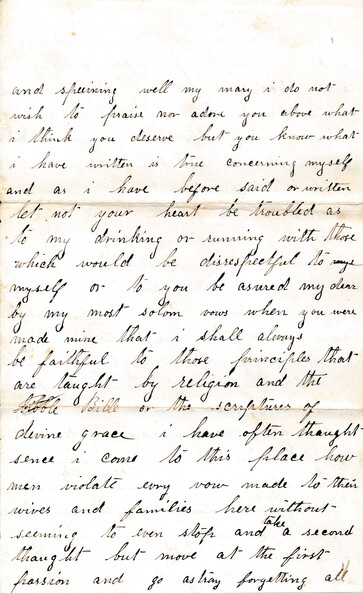 and speiining well my mary i do not
wish to praise nor adore you above what
i think you deserve but you know what
i have written is true concerning myself
and as i have before said or written
let not your heart be troubled as
to my drinking or running with those
which would be disrespectful to
myself or to you be asured my dear
by my most solom vows when you were
made mine that i shall always
be faithful to those principles that
are taught by religion and the
Bible or the scriptures of
devine grace i have often thought
sence i come to this place how
men violate evry vow made to their
wives and families here without
seeming to even stop and take a second
thaught but move at the first
passion and go astray forgetting all